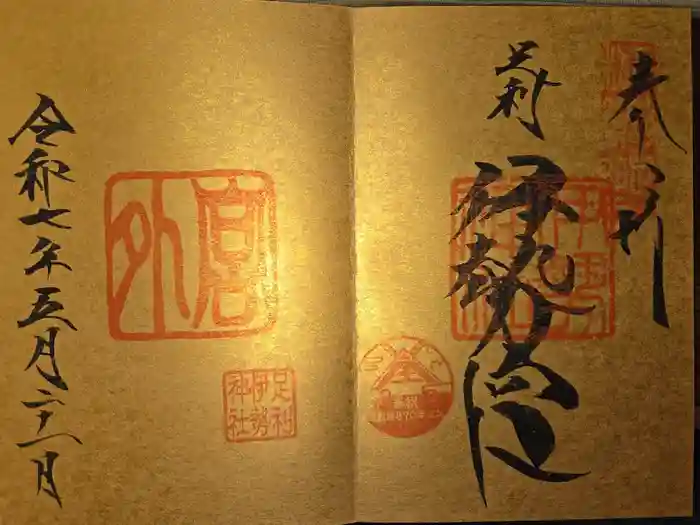 奉拝
足利
伊勢神社
外宮
足利
伊勢
神社
令和七年五月二十八日